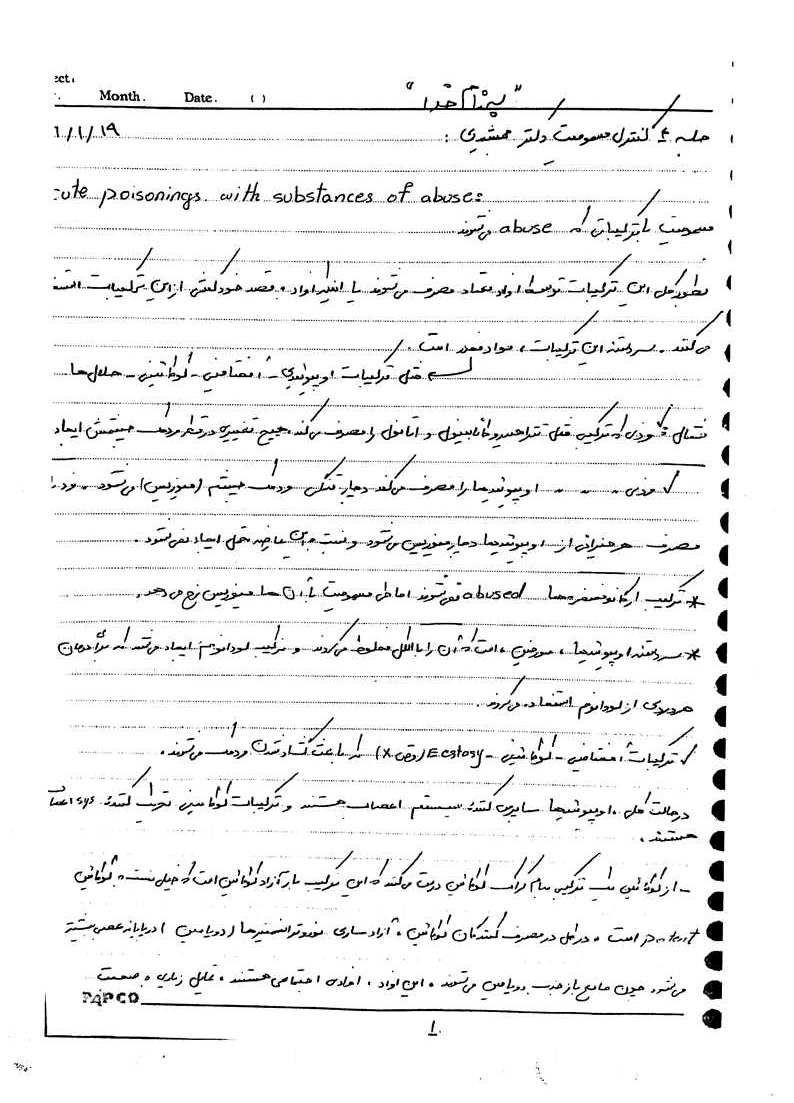 ect:
Month. Date. ( )
"به نام خدا"
جلسه ۴ کنترل مسمومیت دکتر جمشیدی :
1/1/19
cute poisonings with substances of abuse:
مسمومیت با ترکیباتی که abuse می‌شوند
بطور کل این ترکیبات توسط افراد معتاد مصرف می‌شوند یا اغلب افراد به قصد خودکشی از این ترکیبات استفاده
می‌کنند. سردسته این ترکیبات، مواد مخدر است.
مثل ترکیبات اوپیوئیدی - آمفتامین - کوکائین - حلال‌ها
مثال فردی که ترکیب مثل تتراهیدروکانابینول و اتانول را مصرف می‌کند هیچ تغییری در قطر مردمک چشمش ایجاد
✓ فردی که اوپیوئیدها را مصرف می‌کند دچار تنگی مردمک چشم (میوزیس) می‌شود. فرد با
مصرف هر میزانی از اوپیوئیدها دچار میوزیس می‌شود و نسبت به این عارضه تحمل ایجاد نمی‌شود.
* ترکیب ارگانوفسفره‌ها abused نمی‌شوند اما طی مسمومیت با آن‌ها میوزیس رخ می‌دهد.
* سردسته اوپیوئیدها، مورفین است که آن را با الکل مخلوط می‌کردند و ترکیب لودانوم ایجاد می‌شد که برای درمان
هر دردی از لودانوم استفاده می‌کردند.
✓ ترکیبات آمفتامین - کوکائین - Ecstasy (قرص X) که باعث گشاد شدن مردمک می‌شوند.
در حالت کل، اوپیوئیدها سایرس کننده سیستم اعصاب هستند و ترکیبات کوکائین تحریک کننده sys اعصاب
هستند.
- از کوکائین یک ترکیب بنام کراک کوکائین درست می‌کنند که این ترکیب باز آزاد کوکائین است که خیلی نسبت به کوکائین
potent است. در اصل در مصرف کنندگان کوکائین، آزادسازی نوروترانسمیترها (دوپامین) در پایانه عصبی بیشتر
می‌شود چون مانع بازجذب دوپامین می‌شوند. این افراد، افرادی اجتماعی هستند، تمایل زیادی به صحبت
PAPCO
1.